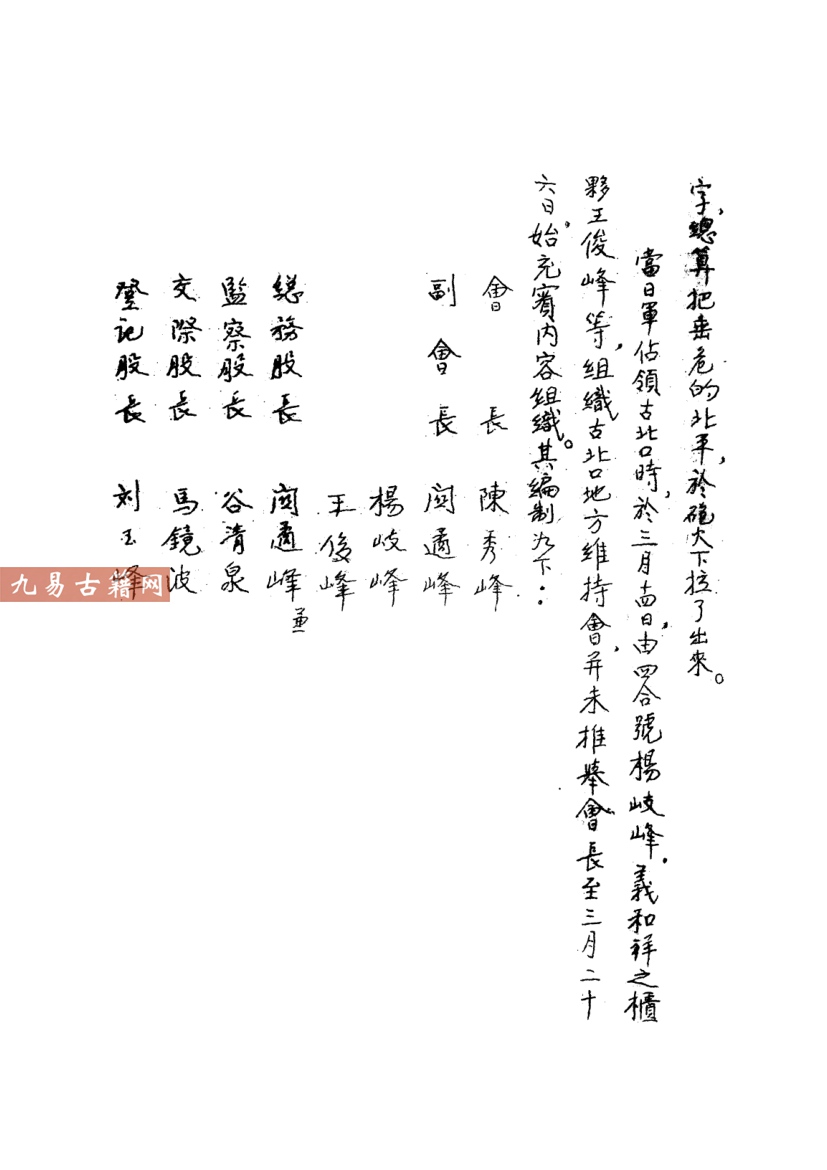 字,總算把垂危的北平,於礮火下拉了出來。
當日軍佔領古北口時,於三月十四日,由四合號楊岐峰.義和祥之櫃
夥王俊峰等,組織古北口地方維持會,并未推舉會長至三月二十
六日,始充實内容組織。其編制如下:
會長 陳秀峰
副會長 閻適峰
楊岐峰
王俊峰
総務股長 閻適峰兼
監察股長 谷清泉
交際股長 馬鏡波
登記股長 刘玉峰
九易古籍网